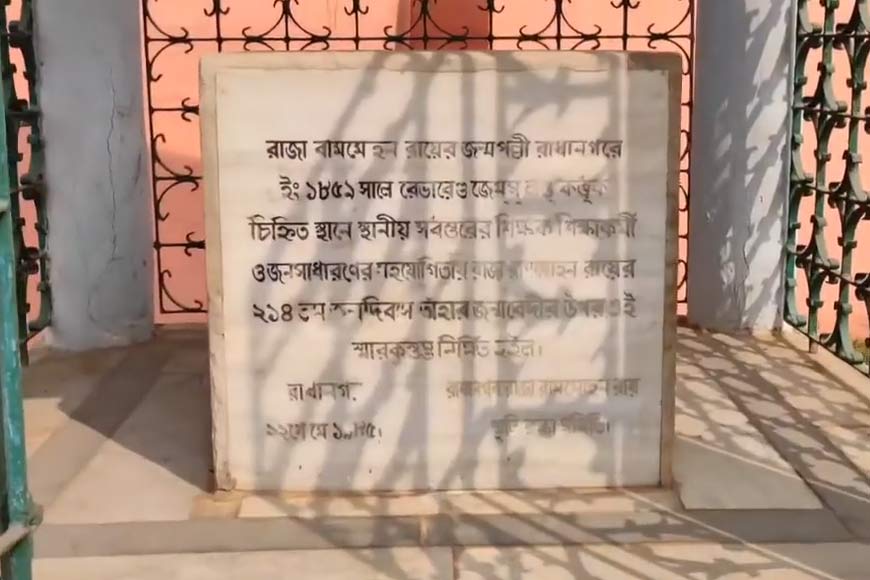 রাজা রামমোহন রায়ের জন্মপল্লী রাধানগরে
ইং ১৮৫১ সালে রেভারেণ্ড জেমস্ লঙ্ কর্ত্তৃক
চিহ্নিত স্থানে স্থানীয় সর্বস্তরের শিক্ষক শিক্ষাকর্মী
ও জনসাধারণের সহযোগিতায় রাজা রামমোহন রায়ের
২১৪ তম জন্মদিবসে তাঁহার জন্মবেদীর উপর এই
স্মারকস্তম্ভ নির্মিত হইল।
রাধানগর
২২শে মে ১৯৮৫। রাজা রামমোহন রায়
স্মৃতি রক্ষা সমিতি।